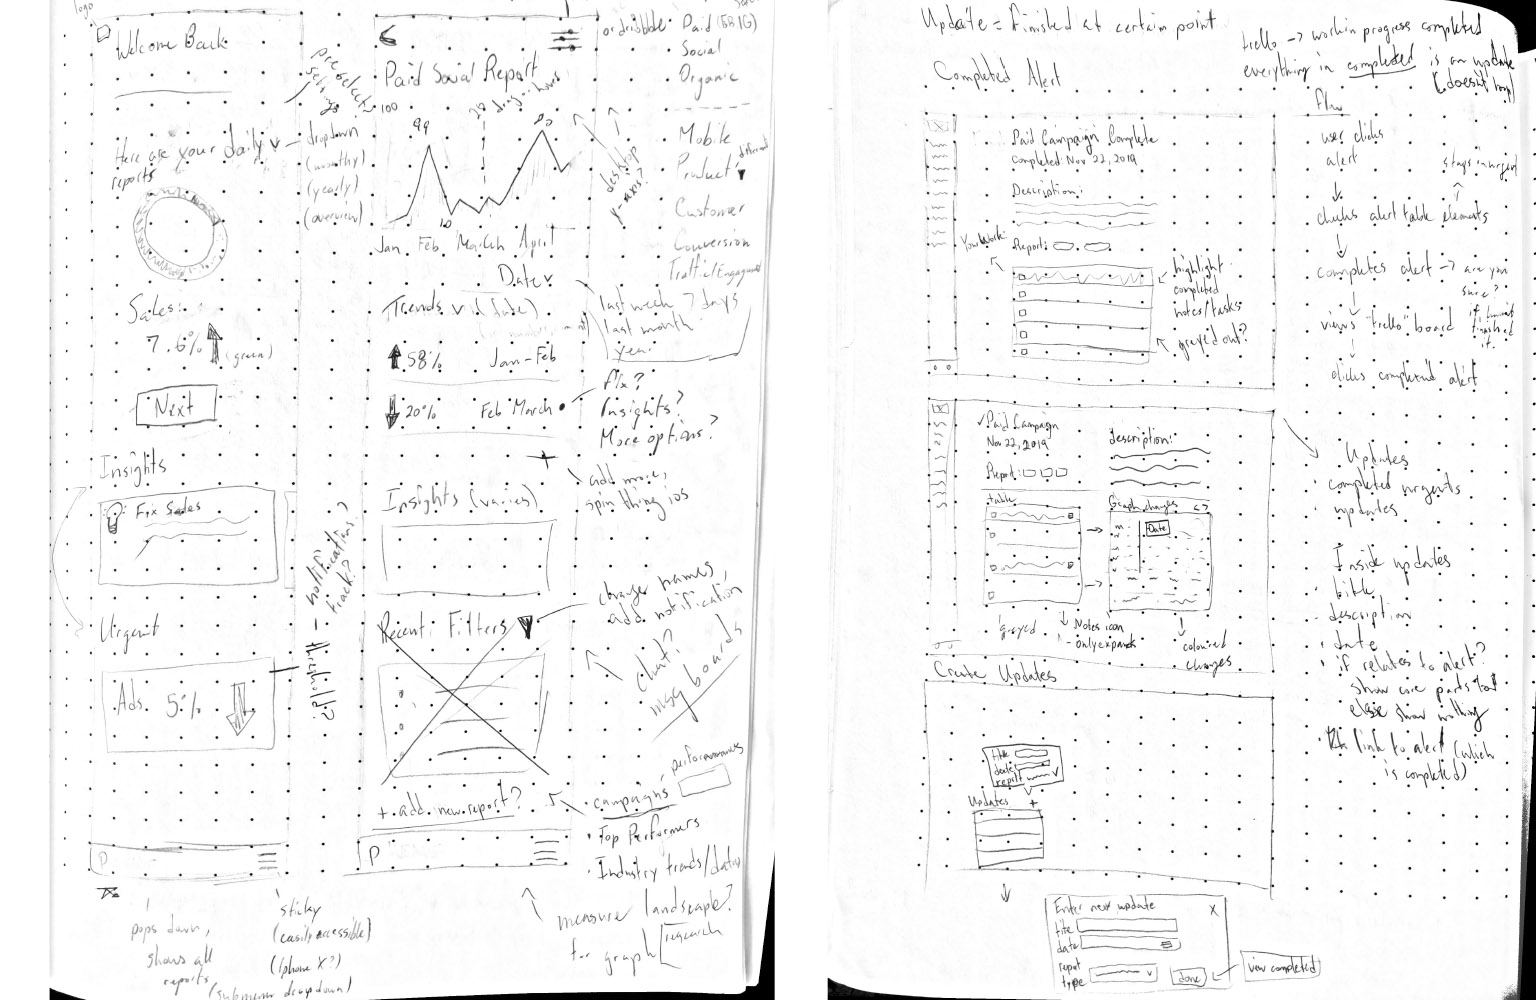 logo
Welcome Back
Here are your daily
reports
Sales:
7.6%
(green)
Next
Insights
Fix Sales
Urgent
Ads
5%
P
pops down,
shows all
reports
(submenu dropdown)
sticky
(easily accessible)
(Iphone X?)
dropdown
(monthy)
(yearly)
(overview)
notification?
track?
threshold?
Paid Social Report
100
99
20
10
Jan Feb March April
Date
Trends
58%
Jan-Feb
20%
Feb March
+
Insights (varies)
Recent: Filters
+ add new report?
P
or dribbble
Paid (FB IG)
Social
Organic
Mobile
Product
different
Customer
Conversion
Traffic/Engagement
desktop
y-axis?
last week 7 days
last month
year
fix?
Insights?
More options?
add more,
spin thing ios
change names,
add notification
Chat?
msg boards
performances
campaigns
Top Performers
Industry trends/data
measure landscape?
for graph
research
Update = finished at certain point
Completed Alert
trello -> workin progress completed
everything in completed is an update
(doesn't
flow
user clicks
alert
checks alert table elements
stays in urgent
completes alert -> are you
sure?
views "trello" board
clicks completed alert
Paid Campaign Complete
Completed: Nov 22, 2019
Description:
Your Work:
Report:
highlight
completed
notes/tasks
greyed out?
Paid Campaign
Nov 22, 2019
Report:
description:
table
Graph changes
< >
Date
greyed
Notes icon
- only expands
coloured
changes
Updates
completed urgents
updates
Inside updates
title
description
date
if relates to alert?
show core parts
else show nothing
link to alert (which
is completed)
Create Updates
title
date
report
Updates +
Enter new update
X
title
date
report
type
done
view completed